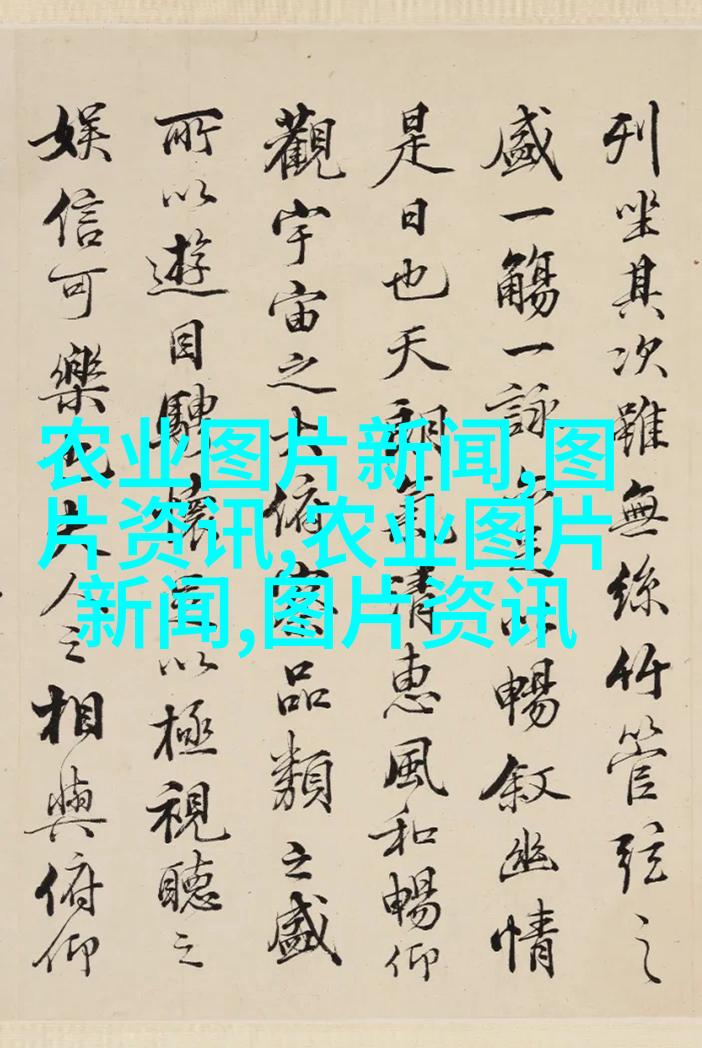 列坐其次雖無絲竹管弦之
盛一觴一詠亦足以暢叙幽情
是日也天朗氣清惠風和暢仰
觀宇宙之大俯察品類之盛
所以遊目騁懷足以極視聽之
娛信可樂也夫人之相與俯仰
农业图片新闻,图
片资讯,农业图片
新闻,图片资讯